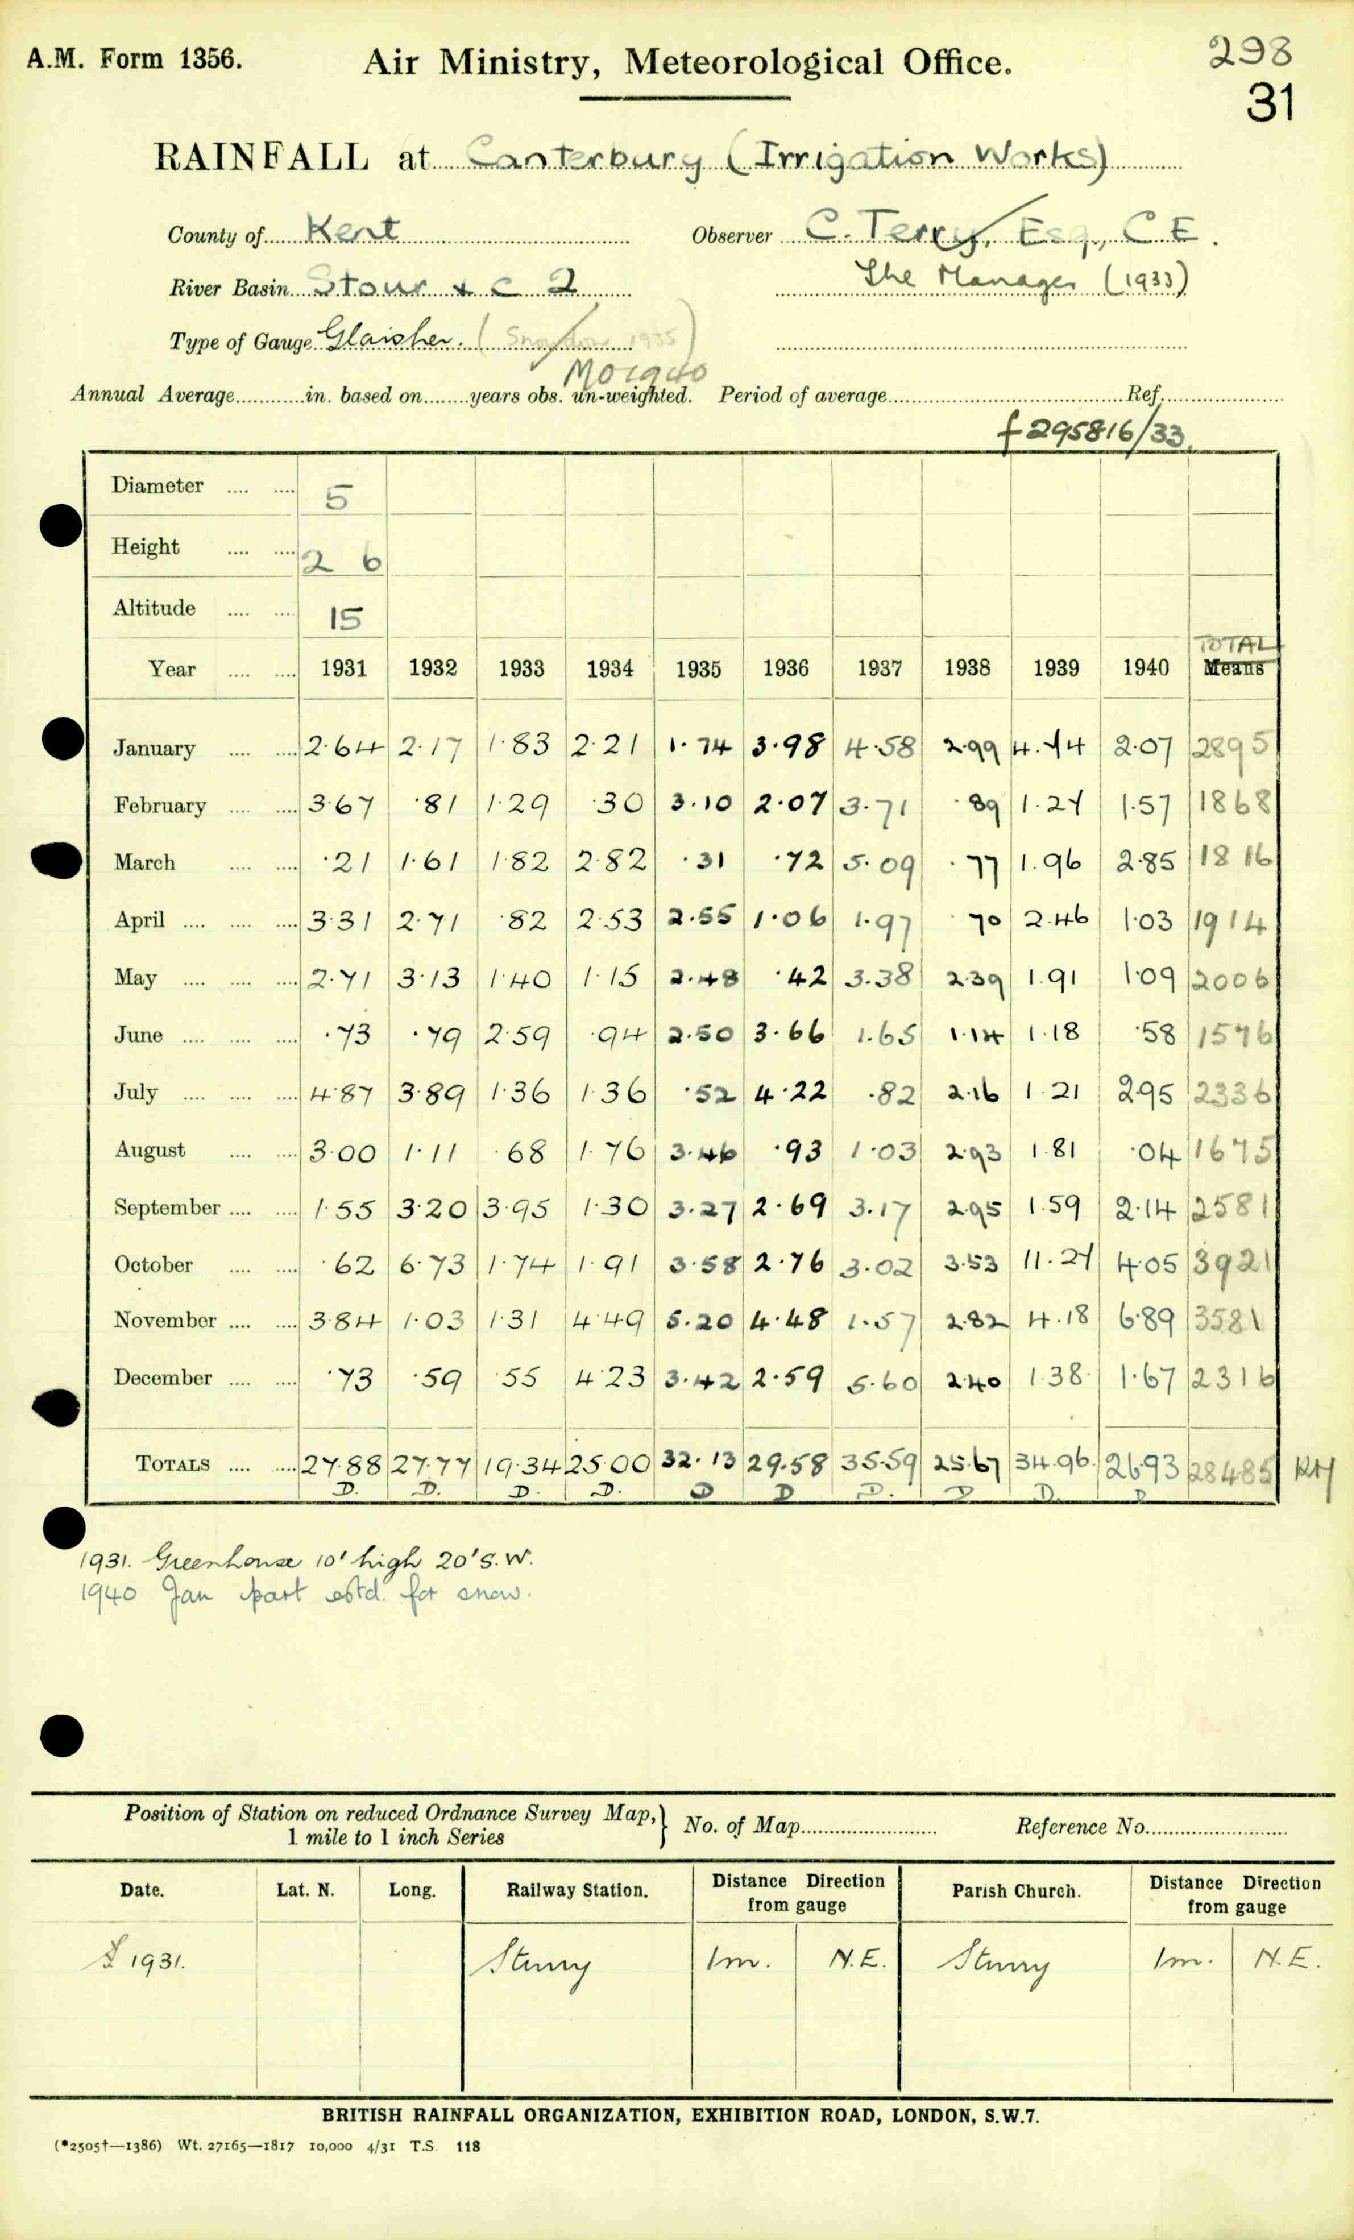 A.M. Form 1356.
Air Ministry, Meteorological Office.
298
31
RAINFALL at Canterbury (Irrigation Works)
County of Kent Observer C. Terry, Esq., C.E.
River Basin Stour & c 2 The Manager (1933)
Type of Gauge Glaisher. (Snowdon 1935)
MO 1940
Annual Average in. based on years obs. un-weighted. Period of average Ref.
f 295816/33.
Diameter 5
Height 2 6
Altitude 15
TOTAL
Year 1931 1932 1933 1934 1935 1936 1937 1938 1939 1940 Means
January 2.64 2.17 1.83 2.21 1.74 3.98 4.58 2.99 4.74 2.07 2895
February 3.67 .81 1.29 .30 3.10 2.07 3.71 .89 1.27 1.57 1868
March .21 1.61 1.82 2.82 .31 .72 5.09 .77 1.96 2.85 1816
April 3.31 2.71 .82 2.53 2.55 1.06 1.97 .70 2.46 1.03 1914
May 2.71 3.13 1.40 1.15 2.48 .42 3.38 2.39 1.91 1.09 2006
June .73 .79 2.59 .94 2.50 3.66 1.65 1.14 1.18 .58 1576
July 4.87 3.89 1.36 1.36 .52 4.22 .82 2.16 1.21 2.95 2336
August 3.00 1.11 .68 1.76 3.46 .93 1.03 2.93 1.81 .04 1675
September 1.55 3.20 3.95 1.30 3.27 2.69 3.17 2.95 1.59 2.14 2581
October .62 6.73 1.74 1.91 3.58 2.76 3.02 3.53 11.27 4.05 3921
November 3.84 1.03 1.31 4.49 5.20 4.48 1.57 2.82 4.18 6.89 3581
December .73 .59 .55 4.23 3.42 2.59 5.60 2.40 1.38 1.67 2316
TOTALS 27.88 27.77 19.34 25.00 32.13 29.58 35.59 25.67 34.96 26.93 28485
D. D. D. D. D D D. D D. D
1931. Greenhouse 10' high 20' S.W.
1940 Jan part estd. for snow.
Position of Station on reduced Ordnance Survey Map, 1 mile to 1 inch Series } No. of Map Reference No.
Date. Lat. N. Long. Railway Station. Distance Direction from gauge Parish Church. Distance Direction from gauge
1931. Sturry 1m. N.E. Sturry 1m. N.E.
BRITISH RAINFALL ORGANIZATION, EXHIBITION ROAD, LONDON, S.W.7.
(*2505†—1386) Wt. 27165—1817 10,000 4/31 T.S. 118